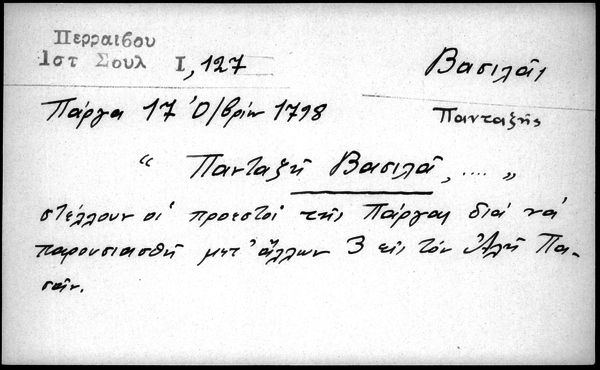 Περραιβου
Ιστ Σουλ Ι, 127
Βασιλᾶς
Πάργα 17 Ὀ/βρίου 1798
Πανταζῆς
“ Πανταζῆ Βασιλᾶ, .... „
στέλλουν οἱ προεστοί τῆς Πάργας διά νά
παρουσιασθῆ μετ' ἄλλων 3 εἰς τόν Ἀλῆ Πα-
σᾶν.